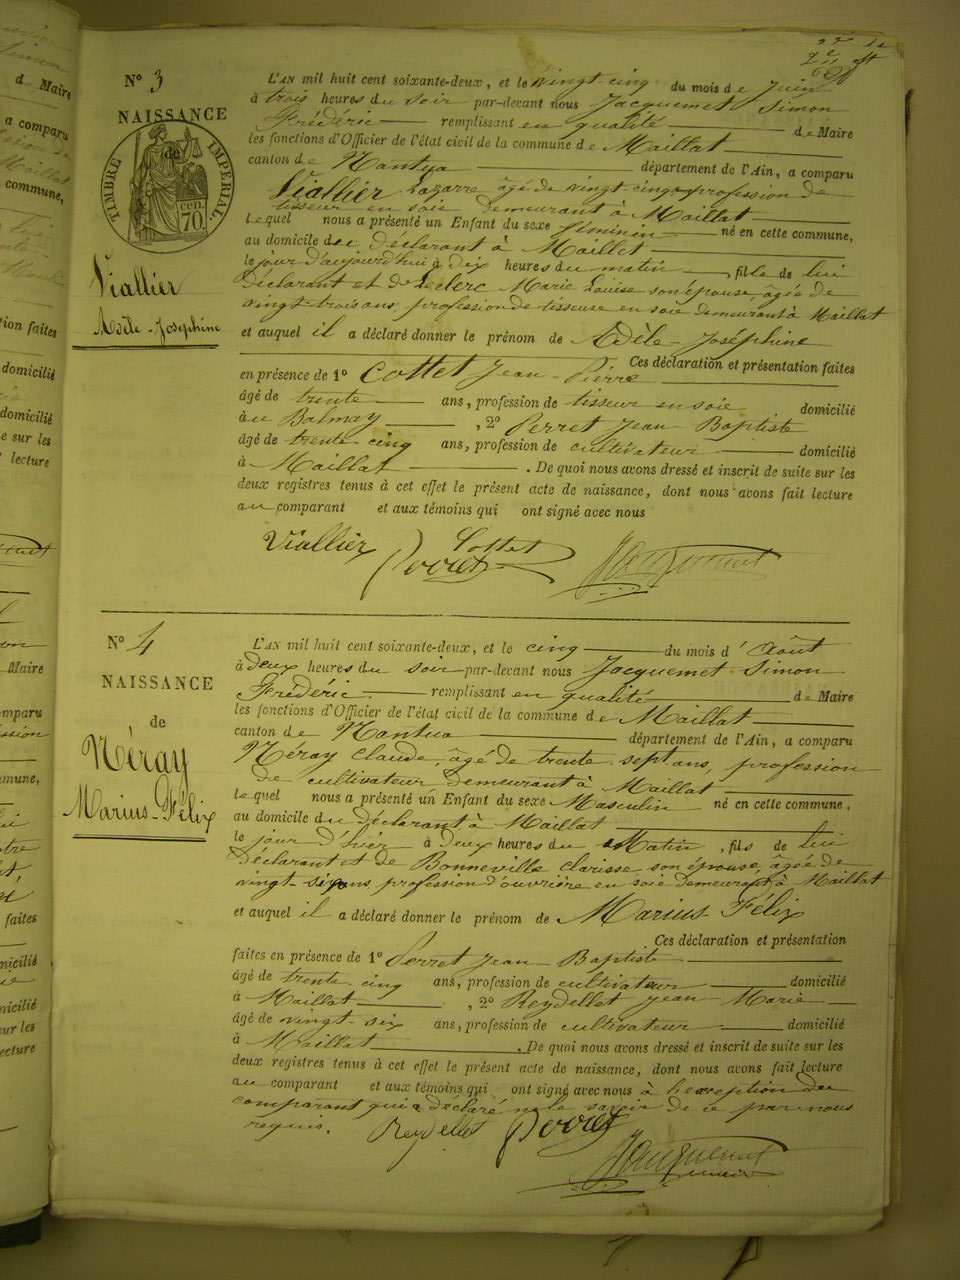 d e Maire
a comparu
commune,
faites
domicilié
domicilié
e sur les
lecture
Maire
comparu
commune,
faites
domicilié
domicilié
sur les
lecture
N° 3
NAISSANCE
de
TIMBRE IMPERIAL
70 cen.
Viallier
Adèle-Joséphine
L'AN mil huit cent soixante-deux, et le vingt cinq du mois de Juin
à trois heures du soir par-devant nous Jacquemet Simon
Frédéric remplissant en qualité de Maire
les fonctions d'Officier de l'état civil de la commune de Maillat
canton de Nantua département de l'Ain, a comparu
Viallier Lazarre âgé de vingt-cinq profession de
tisseur en soie demeurant à Maillat
Lequel nous a présenté un Enfant du sexe féminin né en cette commune,
au domicile du déclarant à Maillet
le jour d'aujourd'hui à dix heures du matin, fille de lui
déclarant et de Leclerc Marie Louise son épouse, âgée de
vingt-trois ans profession de tisseuse en soie demeurant à Maillat
et auquel il a déclaré donner le prénom de Adèle-Joséphine
Ces déclaration et présentation faites
en présence de 1° Cottet Jean-Pierre
âgé de trente ans, profession de tisseur en soie domicilié
à au Balmay, 2° Perret Jean Baptiste
âgé de trente cinq ans, profession de cultivateur domicilié
à Maillat. De quoi nous avons dressé et inscrit de suite sur les
deux registres tenus à cet effet le présent acte de naissance, dont nous avons fait lecture
au comparant et aux témoins qui ont signé avec nous
Viallier Cottet
Perret Jacquemet
N° 4
NAISSANCE
de
Néray
Marius-Félix
L'AN mil huit cent soixante-deux, et le cinq du mois d'Août
à deux heures du soir par-devant nous Jacquemet Simon
Frédéric remplissant en qualité de Maire
les fonctions d'Officier de l'état civil de la commune de Maillat
canton de Nantua département de l'Ain, a comparu
Néray Claude, âgé de trente sept ans, profession
de cultivateur demeurant à Maillat
Lequel nous a présenté un Enfant du sexe Masculin né en cette commune,
au domicile du déclarant à Maillat
le jour d'hier à deux heures du Matin, fils de lui
déclarant et de Bonneville Clarisse son épouse, âgée de
vingt-six ans, profession d'ouvrière en soie demeurant à Maillat
et auquel il a déclaré donner le prénom de Marius-Félix
Ces déclaration et présentation
faites en présence de 1° Perret Jean-Baptiste
âgé de trente cinq ans, profession de cultivateur domicilié
à Maillat, 2° Reydellet Jean Marie
âgé de vingt-six ans, profession de cultivateur domicilié
à Maillat. De quoi nous avons dressé et inscrit de suite sur les
deux registres tenus à cet effet le présent acte de naissance, dont nous avons fait lecture
au comparant et aux témoins qui ont signé avec nous à l'exception du
comparant qui a déclaré ne le savoir de ce par nous
requis. Reydellet Perret
Jacquemet
maire